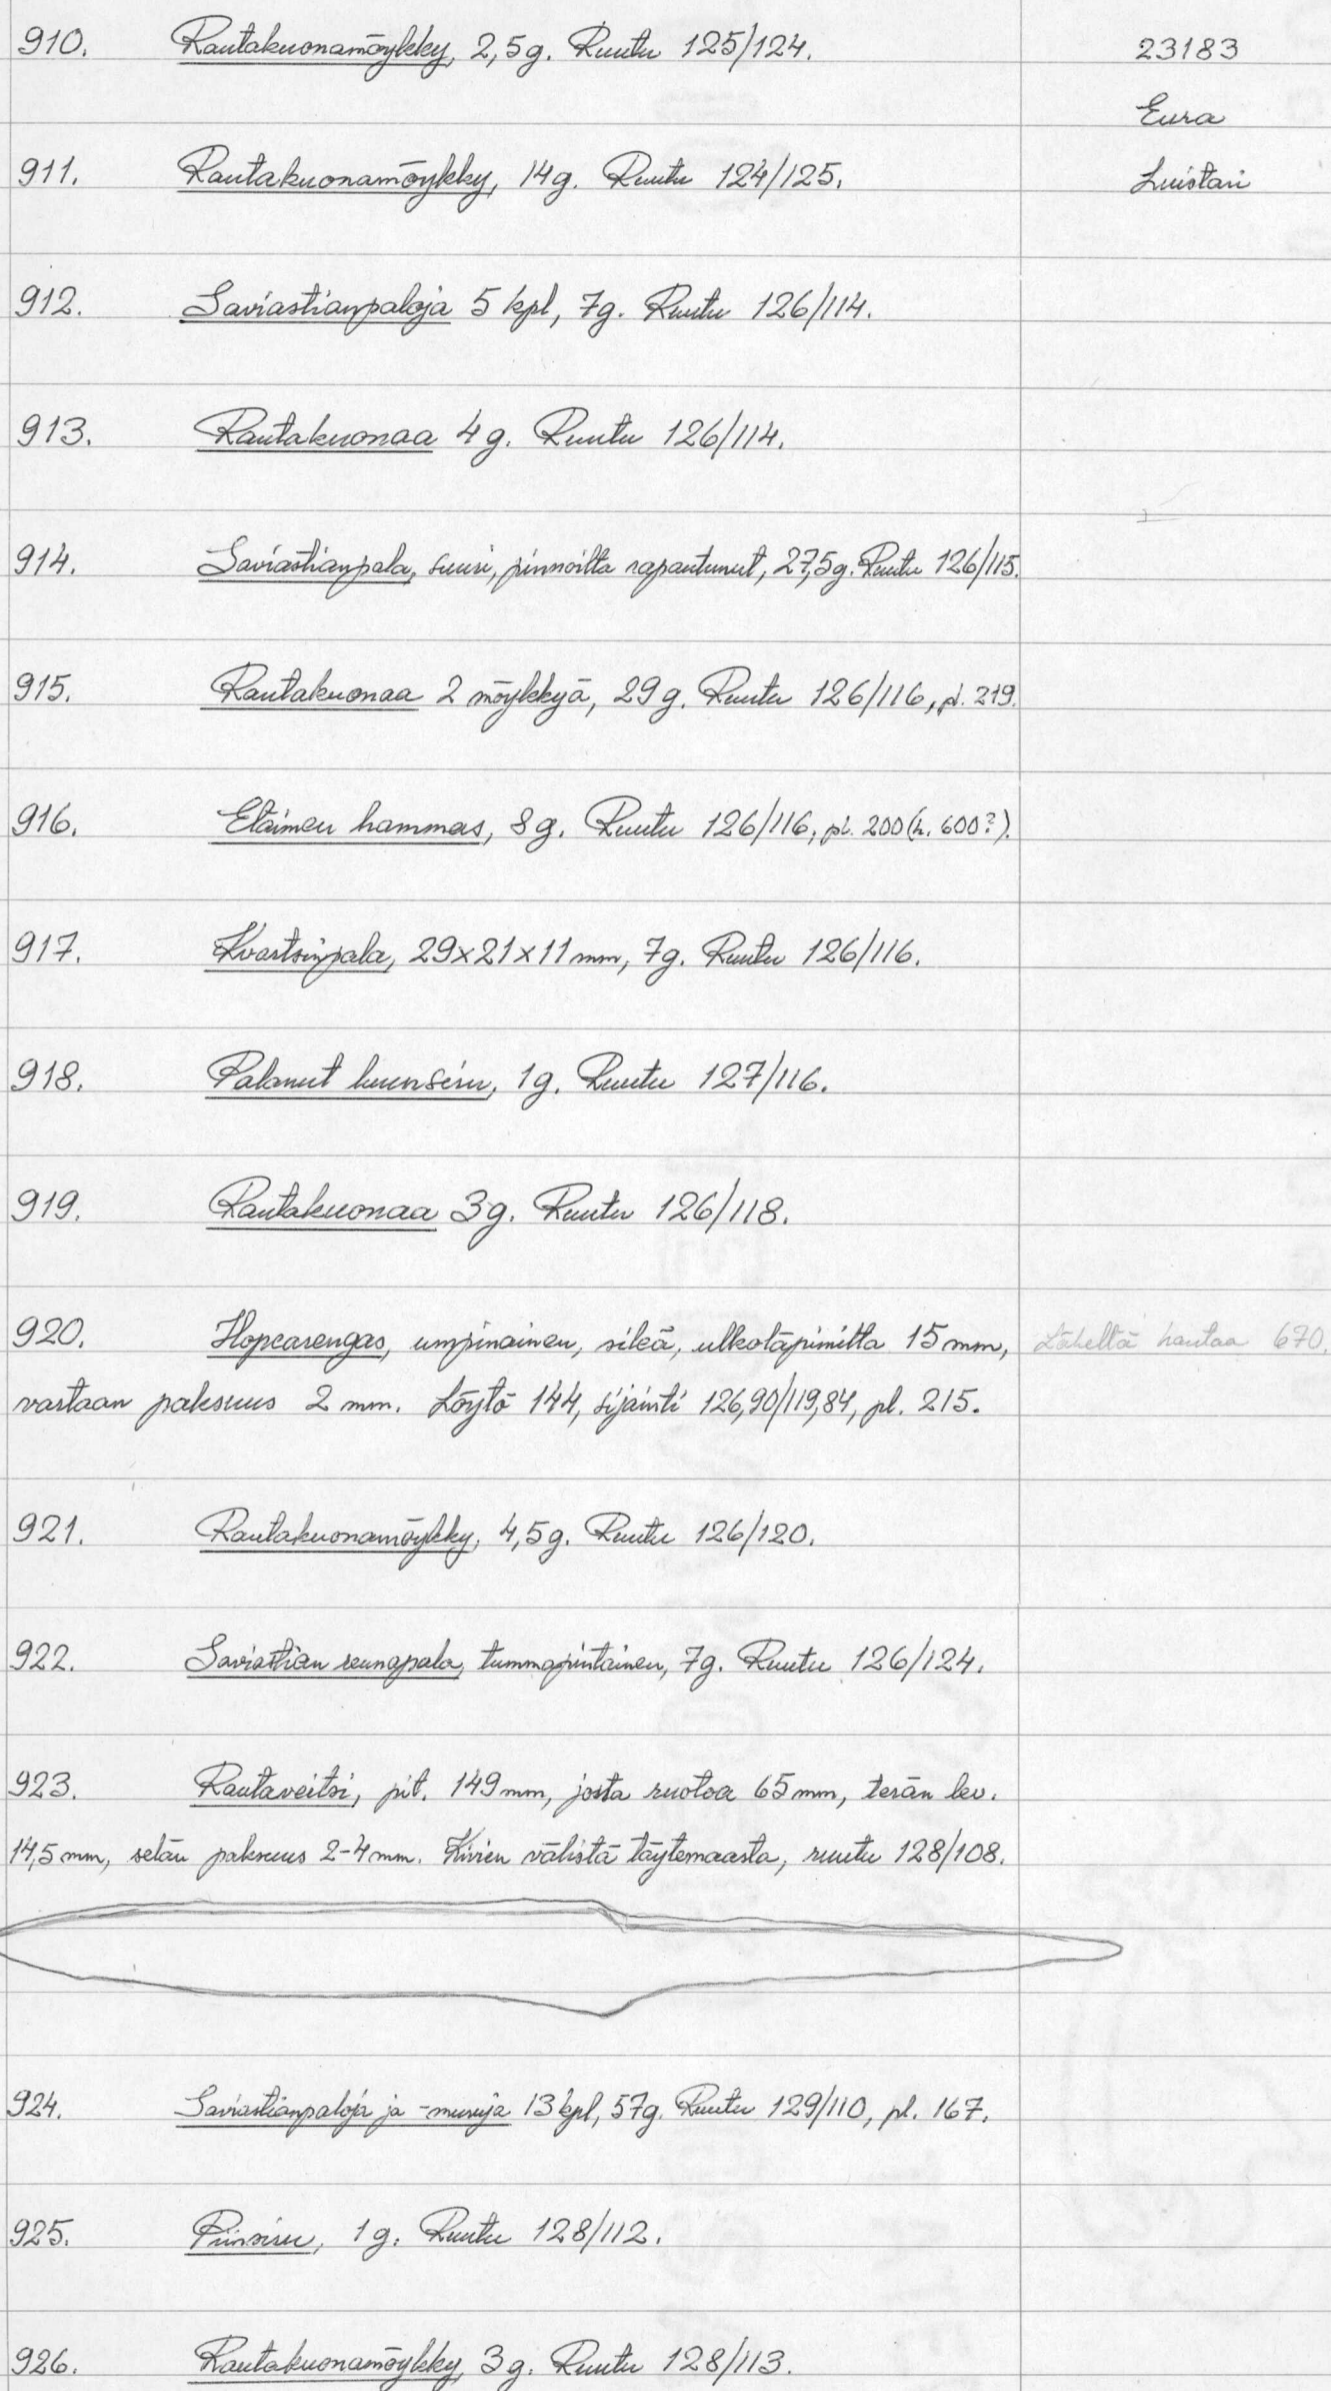 910. Rautakuonamöykky, 2,5g. Ruutu 125/124.
23183
Eura
911. Rautakuonamöykky, 14g. Ruutu 124/125.
Luistari
912. Saviastianpaloja 5 kpl, 7g. Ruutu 126/114.
913. Rautakuonaa 4g. Ruutu 126/114.
914. Saviastianpala, suuri, pinnoilta rapautunut, 27,5g. Ruutu 126/115.
915. Rautakuonaa 2 möykkyä, 29g. Ruutu 126/116, pl. 219.
916. Eläimen hammas, 8g. Ruutu 126/116, pl. 200 (h. 600?).
917. Kvartsinpala, 29x21x11mm, 7g. Ruutu 126/116.
918. Palanut luunsiru, 1g. Ruutu 127/116.
919. Rautakuonaa 3g. Ruutu 126/118.
920. Hopearengas, umpinainen, sileä, ulkoläpimitta 15mm,
Läheltä hautaa 670.
vartaan paksuus 2 mm. Löytö 144, sijainti 126,90/119,84, pl. 215.
921. Rautakuonamöykky, 4,5g. Ruutu 126/120.
922. Saviastian reunapala, tummapintainen, 7g. Ruutu 126/124.
923. Rautaveitsi, pit. 149mm, josta ruotoa 65mm, terän lev.
14,5mm, selän paksuus 2-4mm. Kivien välistä täytemaasta, ruutu 128/108.
924. Saviastianpaloja ja -muruja 13 kpl, 57g. Ruutu 129/110, pl. 167.
925. Piinsiru, 1g. Ruutu 128/112.
926. Rautakuonamöykky, 3g. Ruutu 128/113.